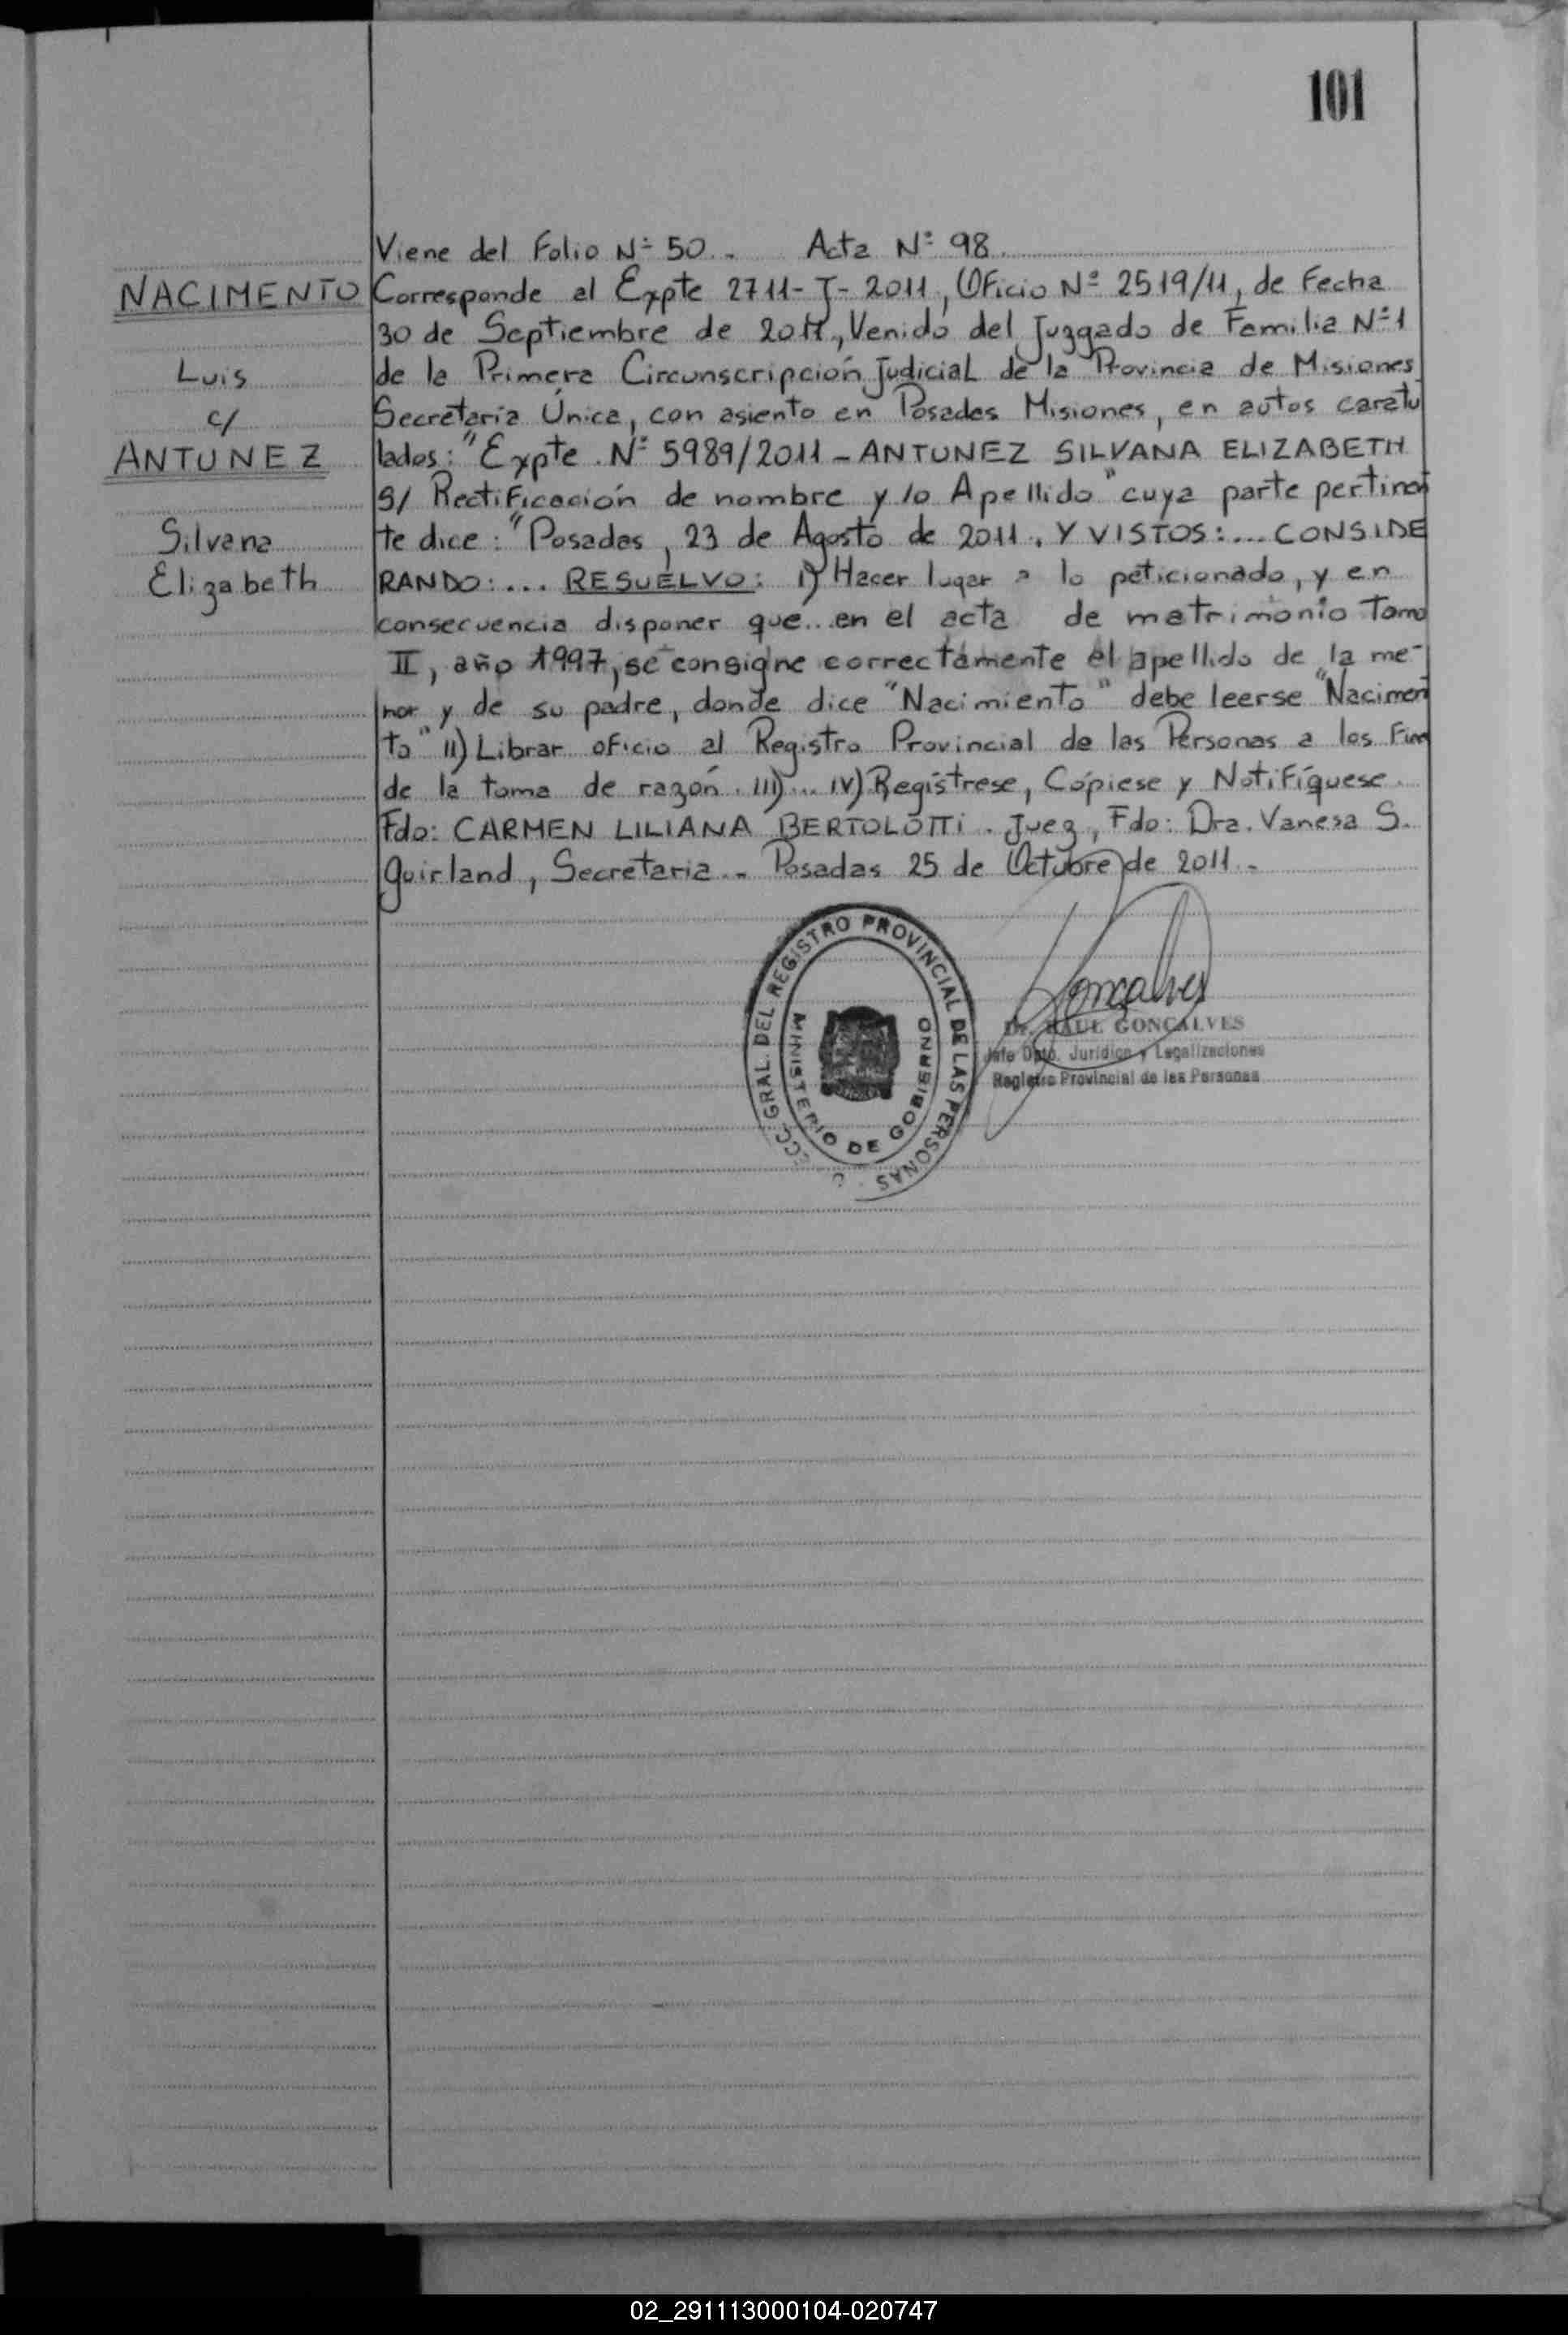 101
Viene del Folio Nº 50.. Acta Nº 98
NACIMENTO
Luis
c/
ANTUNEZ
Silvana
Elizabeth
Corresponde al Expte 2711-J-2011, Oficio Nº 2519/11, de Fecha
30 de Septiembre de 2011, Venido del Juzgado de Familia Nº 1
de la Primera Circunscripción Judicial de la Provincia de Misiones
Secretaría Única, con asiento en Posadas Misiones, en autos caratu
lados: "Expte. Nº 5989/2011 - ANTUNEZ SILVANA ELIZABETH
S/ Rectificación de nombre y/o Apellido" cuya parte pertinen
te dice: "Posadas, 23 de Agosto de 2011. Y VISTOS:... CONSIDE
RANDO:... RESUELVO: I) Hacer lugar a lo peticionado, y en
consecuencia disponer que... en el acta de matrimonio Tomo
II, año 1997, se consigne correctamente el apellido de la me-
nor y de su padre, donde dice "Nacimiento" debe leerse "Nacimen
to" II) Librar oficio al Registro Provincial de las Personas a los Fines
de la toma de razón. III)... IV) Regístrese, Cópiese y Notifíquese.
Fdo: CARMEN LILIANA BERTOLOTTI. Juez, Fdo: Dra. Vanesa S.
Guirland, Secretaria.. Posadas 25 de Octubre de 2011.-
ECC. GRAL. DEL REGISTRO PROVINCIAL DE LAS PERSONAS
MINISTERIO DE GOBIERNO
Gonçalves
Dr. RAUL GONÇALVES
Jefe Dpto. Jurídico y Legalizaciones
Registro Provincial de las Personas
02_291113000104-020747